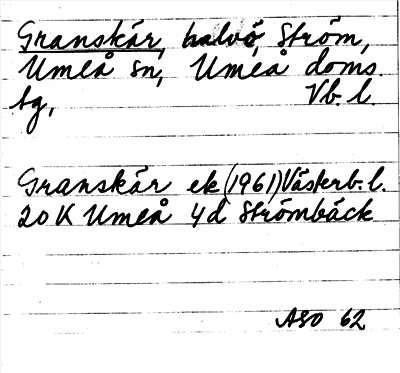 Granskär, halvö, Ström,
Umeå sn, Umeå doms.
tg, Vb. l.
Granskär ek (1961) Västerb. l.
20 K Umeå 4d Strömbäck
ASO 62